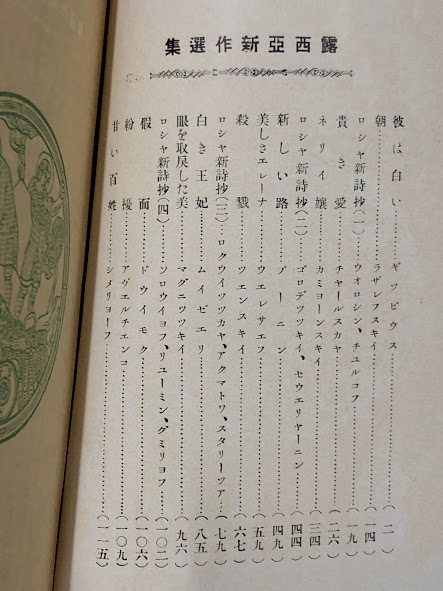 露西亞新作選集
彼は白い……ギッピウス……(二)
朝……ラザレフスキイ……(一四)
ロシヤ新詩抄(一)……ウオロシン、チユルコフ……(一九)
貴き愛……チヤールスカヤ……(二六)
ネリイ孃……カミヨーンスキイ……(三四)
ロシヤ新詩抄(二)……ゴロデツツキイ、セウエリヤーニン……(四四)
新しい路……ブーニン……(四九)
美しきエレーナ……ウエレサエフ……(五九)
殺戮……ツエンスキイ……(六七)
ロシヤ新詩抄(三)……ロクウイツツカヤ、アクマトワ、スタリーツア……(七九)
白き王妃……ムイゼエリ……(八五)
眼を取戻した美……マグニツツキイ……(九六)
ロシヤ新詩抄(四)……ソロウイヨフ、リユーミン、グミリヨフ……(一〇二)
假面……ドウイモク……(一〇六)
紛擾……アヴエルチエンコ……(一〇九)
甘い百姓……シメリヨーフ……(一一五)